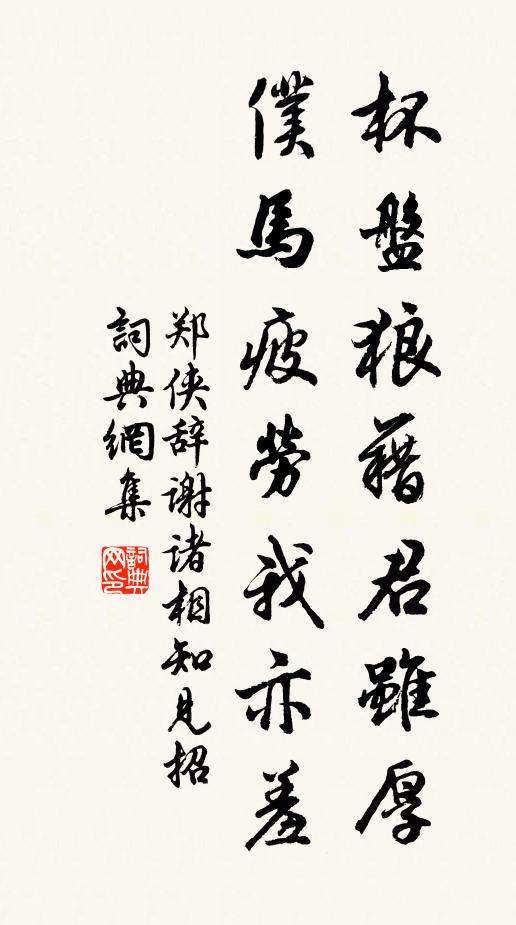 杯盤狼藉君雖厚
僕馬疲勞我亦羞
郑侠辞谢诸相知见招
詞典網集
詞典网印